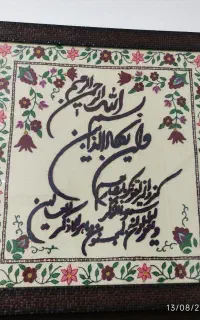 بسم الله الرحمن الرحیم
وإن یکاد الذین
کفروا لیزلقونک بأبصارهم
لما سمعوا الذکر
ویقولون إنه لمجنون وما هو إلا ذکر للعالمین
13/08/2